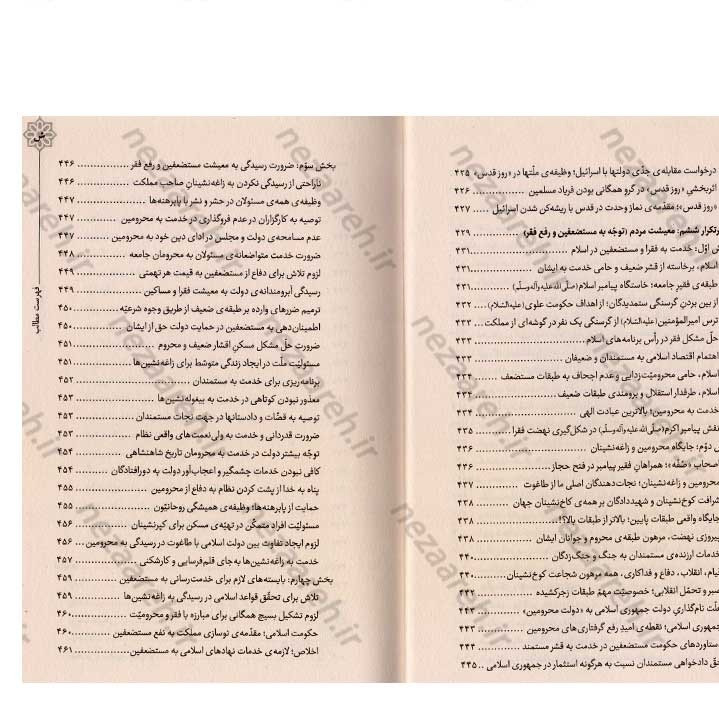 درخواست مقابله‌ی جدّی دولتها با اسرائیل؛ وظیفه‌ی ملّتها در «روز قدس» ۴۲۵
اثربخشیِ «روز قدس» در گرو همگانی بودن فریاد مسلمین ۴۲۶
«روز قدس»؛ مقدّمه‌ی نماز وحدت در قدس با ریشه‌کن شدن اسرائیل ۴۲۷
تکرار ششم: معیشت مردم (توجّه به مستضعفین و رفع فقر) ۴۲۹
اوّل: خدمت به فقرا و مستضعفین در اسلام ۴۳۱
اسلام، برخاسته از قشر ضعیف و حامی خدمت به ایشان ۴۳۱
طبقه‌ی فقیرِ جامعه؛ خاستگاه پیامبر اسلام (صلّی‌الله‌علیه‌وآله‌وسلّم) ۴۳۱
از بین بردنِ گرسنگی ستمدیدگان؛ از اهداف حکومت علوی (علیه‌السّلام) ۴۳۲
ترس امیرالمؤمنین (علیه‌السّلام) از گرسنگی یک نفر در گوشه‌ای از مملکت ۴۳۳
حلّ مشکل فقر در رأس برنامه‌های اسلام ۴۳۳
اهتمام اقتصاد اسلامی به مستمندان و ضعیفان ۴۳۳
اسلام، حامی محرومیّت‌زدایی و عدم اجحاف به طبقات مستضعف ۴۳۴
اسلام، طرفدار استقلال و برومندی طبقات ضعیف ۴۳۴
خدمت به محرومین؛ بالاترین عبادت الهی ۴۳۴
نقش پیامبر اکرم (صلّی‌الله‌علیه‌وآله‌وسلّم) در شکل‌گیری نهضت فقرا ۴۳۵
دوّم: جایگاه محرومین و زاغه‌نشینان ۴۳۶
اصحاب «صُفّه»؛ همراهان فقیر پیامبر در فتح حجاز ۴۳۶
محرومین و زاغه‌نشینان؛ نجات‌دهندگان اصلی ما از طاغوت ۴۳۷
شرافت کوخ‌نشینان و شهیددادگان بر همه‌ی کاخ‌نشینان جهان ۴۳۸
جایگاه واقعی طبقات پایین؛ بالاتر از طبقات بالا؟! ۴۳۸
پیروزی نهضت، مرهون طبقه‌ی محروم و جوانان ایشان ۴۳۸
خدمات ارزنده‌ی مستمندان به جنگ و جنگ‌زدگان ۴۴۰
قیام، انقلاب، دفاع و فداکاری، همه مرهون شجاعت کوخ‌نشینان ۴۴۰
صبر و تحمّل انقلابی؛ خصوصیّت مهمّ طبقات زجرکشیده ۴۴۲
علّت نام‌گذاری دولت جمهوری اسلامی به «دولت محرومین» ۴۴۳
جمهوری اسلامی؛ نقطه‌ی امید رفع گرفتاری‌های محرومین ۴۴۳
دستاوردهای حکومت مستضعفین در خدمت به قشر مستمند ۴۴۴
حقّ دادخواهی مستمندان نسبت به هرگونه استثمار در جمهوری اسلامی ۴۴۵
ش
فهرست مطالب
بخش سوّم: ضرورت رسیدگی به معیشت مستضعفین و رفع فقر ۴۴۶
ناراحتی از رسیدگی نکردن به زاغه‌نشینانِ صاحب مملکت ۴۴۶
وظیفه‌ی همه‌ی مسئولان در حشر و نشر با پابرهنه‌ها ۴۴۷
توصیه به کارگزاران در عدم فروگذاری در خدمت به محرومین ۴۴۷
عدم مسامحه‌ی دولت و مجلس در ادای دین خود به محرومین ۴۴۷
ضرورت خدمت متواضعانه‌ی مسئولان به محرومان جامعه ۴۴۸
لزوم تلاش برای دفاع از مستضعفین به قیمت هر تهمتی ۴۴۹
رسیدگی آبرومندانه‌ی دولت به معیشت فقرا و مساکین ۴۴۹
ترمیم ضررهای وارده بر طبقه‌ی ضعیف از طریق وجوه شرعیّه ۴۵۰
اطمینان‌دهی به مستضعفین در حمایت دولت حق از ایشان ۴۵۰
ضرورتِ حلّ مشکل مسکنِ اقشار ضعیف و محروم ۴۵۱
مسئولیّت دولت در ایجاد زندگی متوسّط برای زاغه‌نشین‌ها ۴۵۱
برنامه‌ریزی برای خدمت به مستمندان ۴۵۲
معذور نبودن کوتاهی در خدمت به بیغوله‌نشین‌ها ۴۵۳
توصیه به قضّات و دادستانها در جهت نجات مستمندان ۴۵۳
ضرورت قدردانی و خدمت به ولی‌نعمت‌های واقعی نظام ۴۵۳
توجّه بیشتر دولت در خدمت به محرومان تاریخ شاهنشاهی ۴۵۴
کافی نبودن خدمات چشمگیر و اعجاب‌آور دولت به دورافتادگان ۴۵۴
پناه به خدا از پشت کردن نظام به دفاع از محرومین ۴۵۵
حمایت از پابرهنه‌ها؛ وظیفه‌ی همیشگی روحانیّون ۴۵۵
مسئولیّت افراد متمکّن در تهیّه‌ی مسکن برای کپرنشینان ۴۵۶
لزوم ایجاد تفاوت بین دولت اسلامی با طاغوت در رسیدگی به محرومین ۴۵۶
خدمت به زاغه‌نشین‌ها به جای قلم‌فرسایی و کارشکنی ۴۵۷
بخش چهارم: بایسته‌های لازم برای خدمت‌رسانی به مستضعفین ۴۵۹
تلاش برای تحقّق قواعد اسلامی در رسیدگی به زاغه‌نشین‌ها ۴۵۹
لزوم تشکیل بسیج همگانی برای مبارزه با فقر و محرومیّت ۴۶۰
حکومت اسلامی؛ مقدّمه‌ی نوسازی مملکت به نفع مستضعفین ۴۶۰
اخلاص؛ لازمه‌ی خدمات نهادهای اسلامی به مستضعفین ۴۶۱
nezaareh.ir